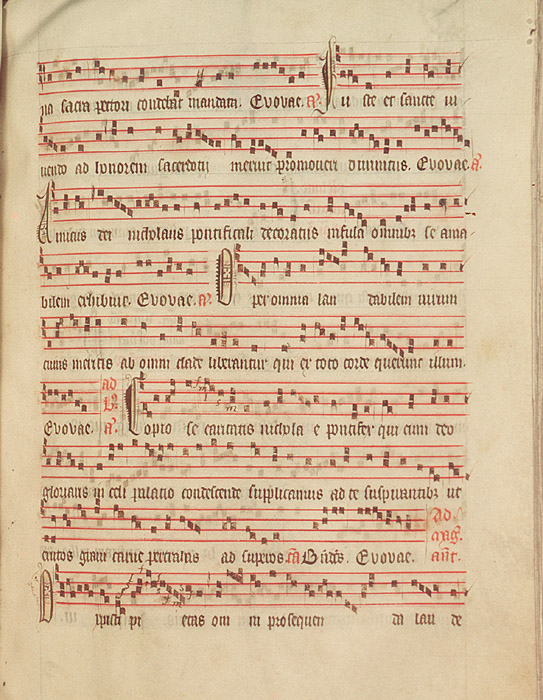 na sacra pectori condebat mandata. Evovae. A. Iu ste et sancte ui
uendo ad honorem sacerdotii meruit promoueri diuinitus. Evovae. A.
Amicus dei nicholaus pontificali decoratus infula omnibz se ama
bilem exhibuit. Evovae. A. O per omnia lau dabilem uirum
cuius meritis ab omni clade liberantur qui ex toto corde querunt illum.
Evovae. ad B. A. Copio se caritatis nichola e pontifex qui cum deo
gloriaris in celi palatio condescende supplicamus ad te suspirantibz ut
exutos graui carne pertrahas ad superos. Evovae. Ad mag. ant.
O xpisti pi etas om ni prosequen da lau de